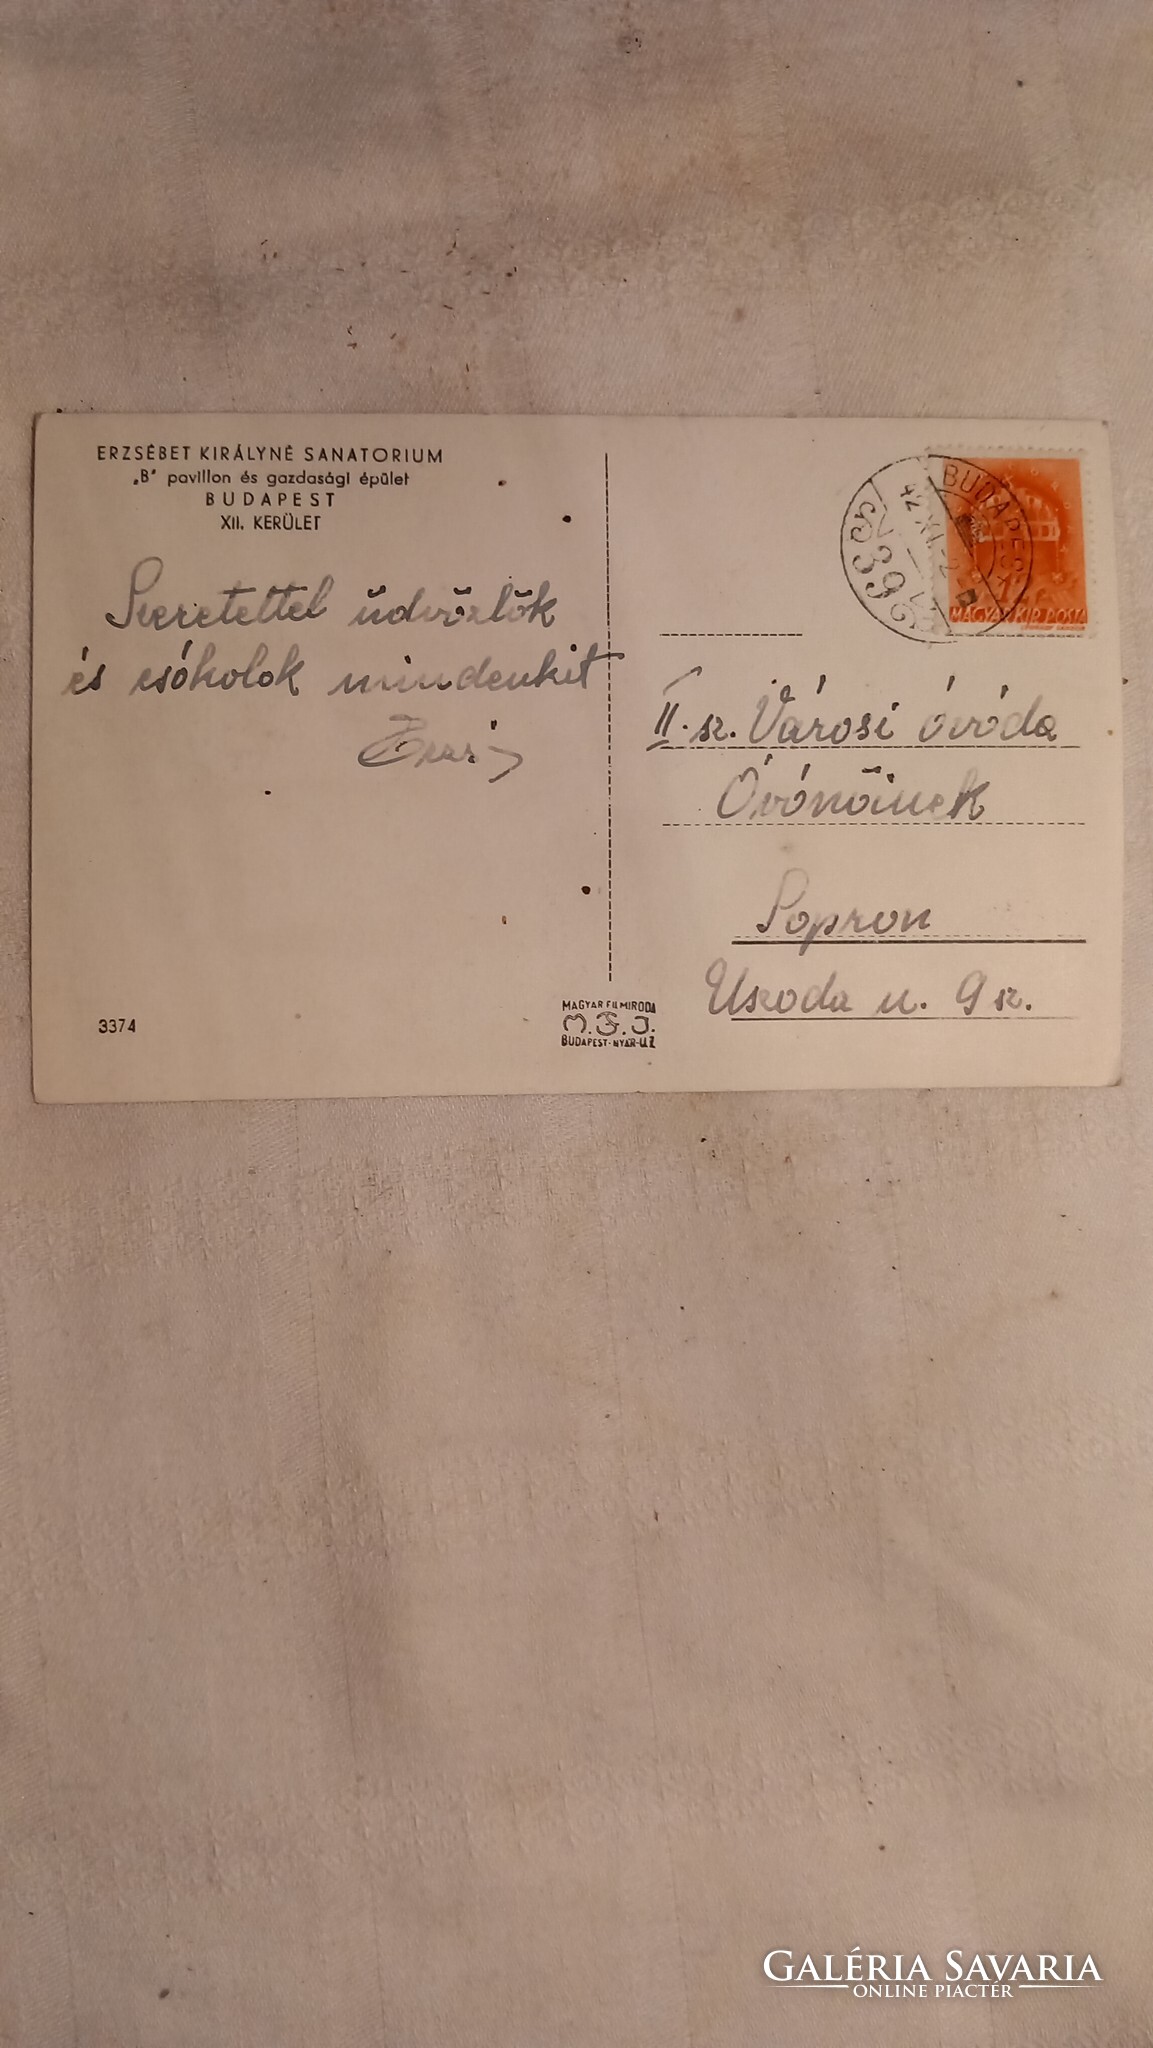 ERZSÉBET KIRÁLYNÉ SANATORIUM
„B" pavillon és gazdasági épület
BUDAPEST
XII. KERÜLET
Szeretettel üdvözlök
és csókolok mindenkit
3374
MAGYAR FILMIRODA
M.F.I.
BUDAPEST-NYÁR-U.
BUDAPEST
42 XI.-2
39
MAGYAR KIR. POSTA
II. sz. Városi óvóda
Óvónőinek
Sopron
Uszoda u. 9 sz.
GALÉRIA SAVARIA
ONLINE PIACTÉR